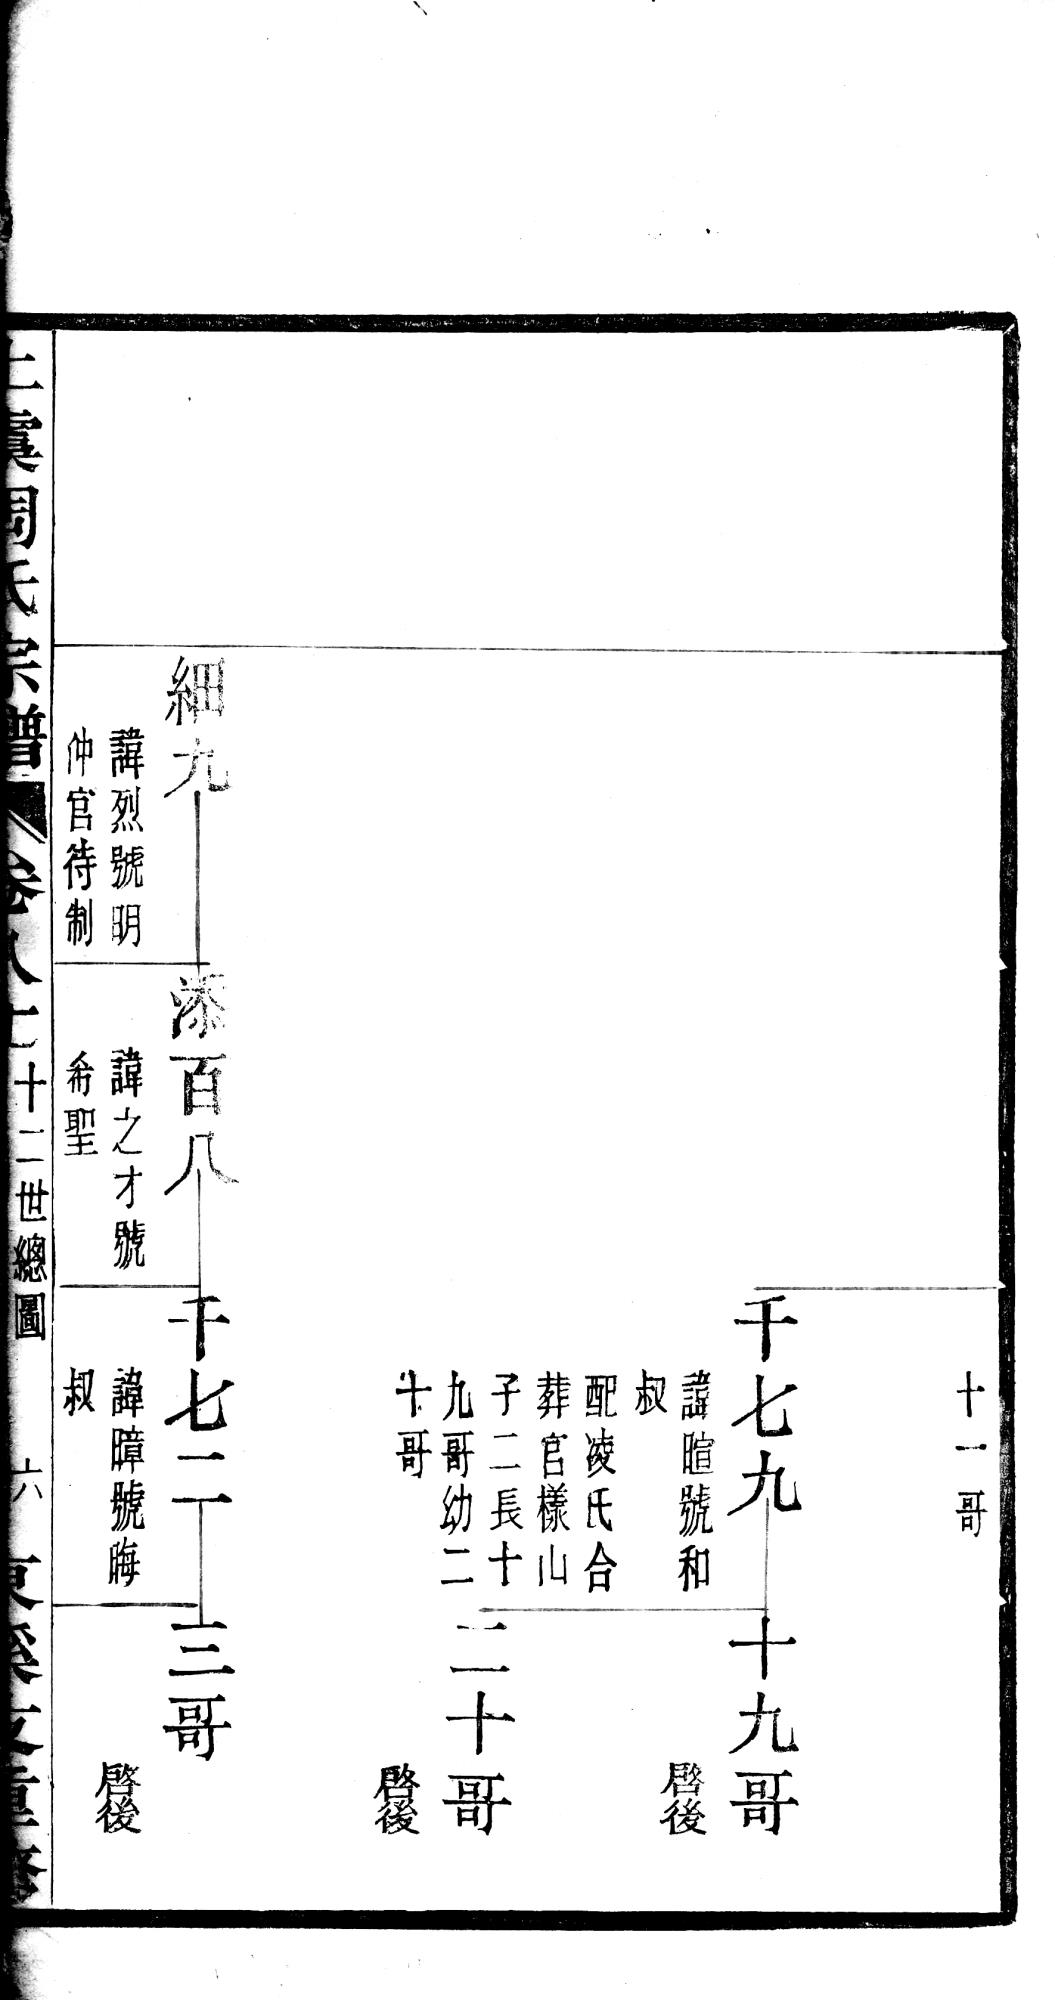 十一哥
千七九
諱暄號和
叔
配凌氏合
葬官樣山
子二長十
九哥幼二
十哥
十九哥
啓後
二十哥
啓後
細九
諱烈號明
仲官待制
添百八
諱之才號
希聖
千七二
諱暐號晦
叔
三哥
啓後
上虞周氏宗譜 卷八上 十二世總圖 六 東溪支重修